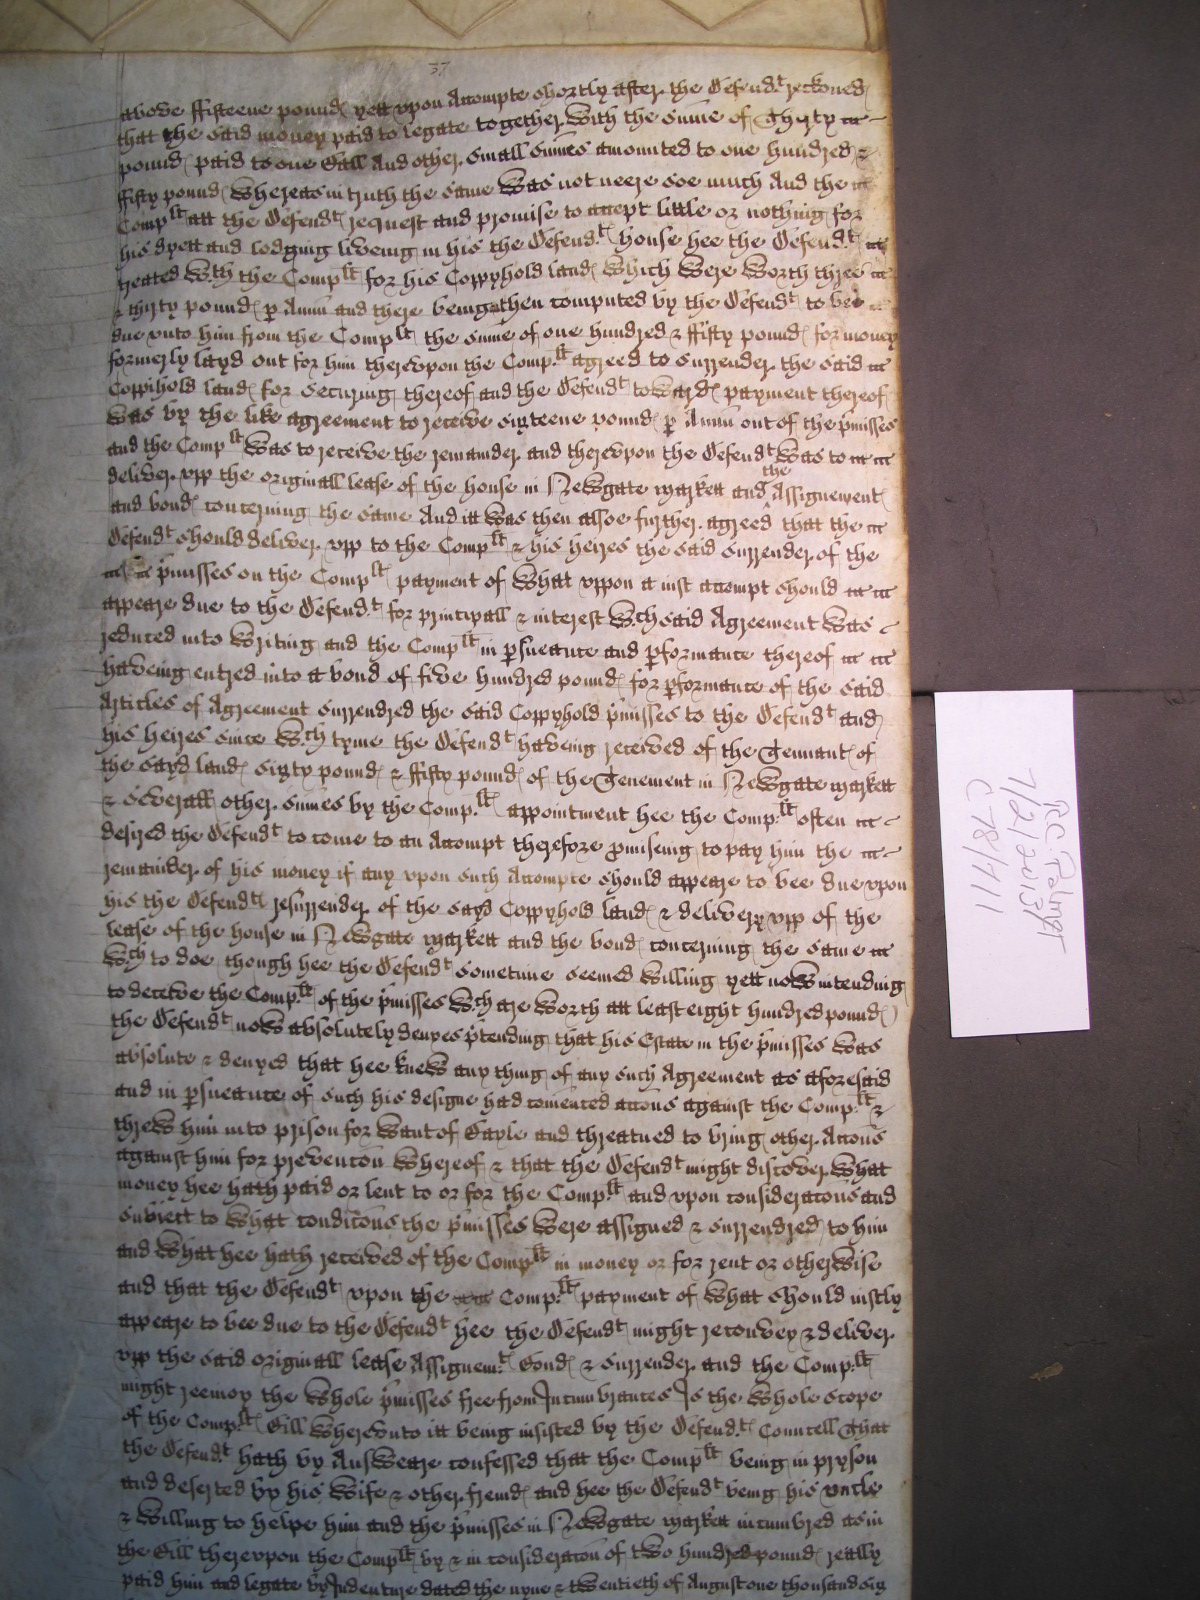 37
above ffifteene pound yett upon Accompte shortly after the Defend.t reckoned
that the said money paid to legate together with the sume of Thirty
pound paid to one Gall And other small sumes amounted to one hundred &
ffifty pound Whereas in truth the same was not neere soe much And the
Comp.lt att the Defend.t request and promise to accept little or nothing for
his dyett and lodging liveing in his the Defend.ts house hee the Defend.t
treated w.th the Comp.lt for his Coppyhold land which were worth three
& thirty pound p Annu and there being then computed by the Defend.t to bee
due unto him from the Comp.lt the sume of one hundred & ffifty pound for money
formerly layd out for him thereupon the Comp.lt agreed to surrender the said
Coppihold land for secureing thereof and the Defend.t toward payment thereof
was by the like agreement to receive sixteene pound p Annu out of the pmisses
and the Comp.lt was to receive the remainder and thereupon the Defend.t was to
deliver upp the originall lease of the house in Newgate markett and the Assignement
and bond concerning the same And itt was then alsoe further agreed that the
Defend.t should deliver upp to the Comp.lt & his heires the said surrender of the
pmisses on the Comp.lt payment of what uppon a iust accompt should
appeare due to the Defend.t for principall & interest w.ch said Agreement was
reduced into writing and the Comp.lt in psueance and pformance thereof
haveing entred into a bond of five hundred pound for pformance of the said
Articles of Agreement surrendred the said Coppyhold pmisses to the Defend.t and
his heires since w.ch tyme the Defend.t haveing received of the Tennant of
the sayd land sixty pound & ffifty pound of the Tenement in Newgate markett
& severall other sumes by the Comp.lts appointment hee the Comp.lt often
desired the Defend.t to come to an Accompt therefore pmiseing to pay him the
remainder of his money if any upon such Accompte should appeare to bee due upon
his the Defend.ts resurrender of the sayd Coppyhold land & delivery upp of the
lease of the house in Newgate markett and the bond concerning the same
w.ch to doe though hee the Defend.t sometime seemed willing yett now intending
to deceive the Comp.lt of the pmisses w.ch are worth att least eight hundred pound
the Defend.t now absolutely denyes ptending that his Estate in the pmisses was
absolute & denyed that hee knew any thing of any such Agreement as aforesaid
and in psueance of such his designe had comenced accons against the Comp.lt &
threw him into prison for want of Bayle and threatned to bring other Accons
against him for prevencon whereof & that the Defend.t might discover what
money hee hath paid or lent to or for the Comp.lt and upon consideracons and
subiect to what condicons the pmisses were assigned & surrendred to him
and what hee hath received of the Comp.lt in money or for rent or otherwise
and that the Defend.t upon the Comp.lts payment of what should iustly
appeare to bee due to the Defend.t hee the Defend.t might reconvey & deliver
upp the said originall lease Assignem.t Bond & surrender and the Comp.lt
might reenioy the whole pmisses free from Incumbrances Is the whole scope
of the Comp.lts Bill whereunto itt being insisted by the Defend.ts Councell That
the Defend.t hath by Answeare confessed that the Comp.lt being in pryson
and deserted by his wife & other freind and hee the Defend.t being his uncle
& willing to helpe him and the pmisses in Newgate markett incumbred as in
the Bill thereupon the Comp.lt by & in consideracon of two hundred pound really
paid him and legate by Indenture dated the nyne & twentieth of August one thousand six
RC Palmer
7/2/2013
C78/711